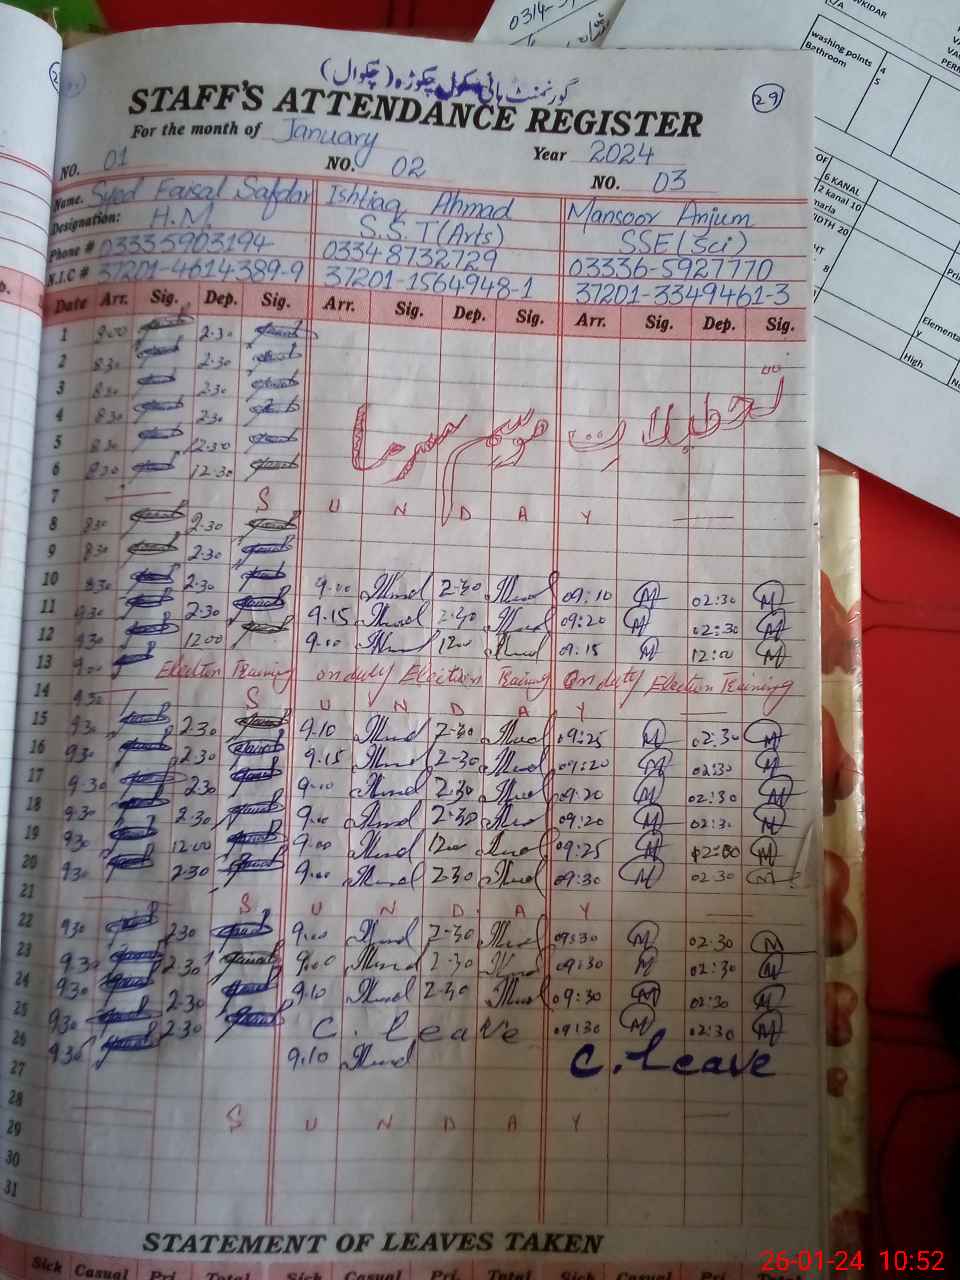 گورنمنٹ ہائی سکول چکوڑہ (چکوال)
29
STAFF'S ATTENDANCE REGISTER
For the month of January Year 2024
NO. 01 NO. 02 NO. 03
Name. Syed Faisal Safdar Ishtiaq Ahmad Mansoor Anjum
Designation: H.M. S.S.T(Arts) SSE(Sci)
Phone # 03335903194 0334-8732729 03336-5927770
N.I.C # 37201-4614389-9 37201-1564948-1 37201-3349461-3
Date Arr. Sig. Dep. Sig. Arr. Sig. Dep. Sig. Arr. Sig. Dep. Sig.
1 9.00 2.30
2 8.30 2.30
3 8.30 2.30
4 8.30 2.30
تعطیلات موسم سرما
5 8.30 12.30
6 8.30 12.30
7 S U N D A Y
8 8.30 2.30
9 8.30 2.30
10 8.30 2.30 9.00 2.30 09:10 M 02:30 M
11 9.30 2.30 9.15 2.30 09:20 M 02:30 M
12 9.30 12.00 9.00 12.00 09:15 M 12:00 M
13 9.00 Election Training on duty Election Training On duty Election Training
14 S U N D A Y
15 9.30 2.30 9.10 2.30 09:25 M 02:30 M
16 9.30 2.30 9.15 2.30 09:20 M 02:30 M
17 9.30 2.30 9.10 2.30 09:20 M 02:30 M
18 9.30 2.30 9.00 2.30 09:20 M 02:30 M
19 9.30 12.00 9.00 12.00 09:25 M 12:00 M
20 9.30 2.30 9.00 2.30 09:30 M 02:30 M
21 S U N D A Y
22 9.30 2.30 9.00 2.30 09:30 M 02:30 M
23 9.30 2.30 9.00 2.30 09:30 M 02:30 M
24 9.30 2.30 9.10 2.30 09:30 M 02:30 M
25 9.30 2.30 C. leave 09:30 M 02:30 M
26 9.30 9.10 C. leave
27
28 S U N D A Y
29
30
31
STATEMENT OF LEAVES TAKEN
Sick Casual Pri. Total Sick Casual Pri. Total Sick Casual Pri. Total
0314-5
WKIDAR
washing points 4
Bathroom 5
OF
6 KANAL
2 kanal 10
marla
IDTH 20
8
Elementa
y
High
26-01-24 10:52